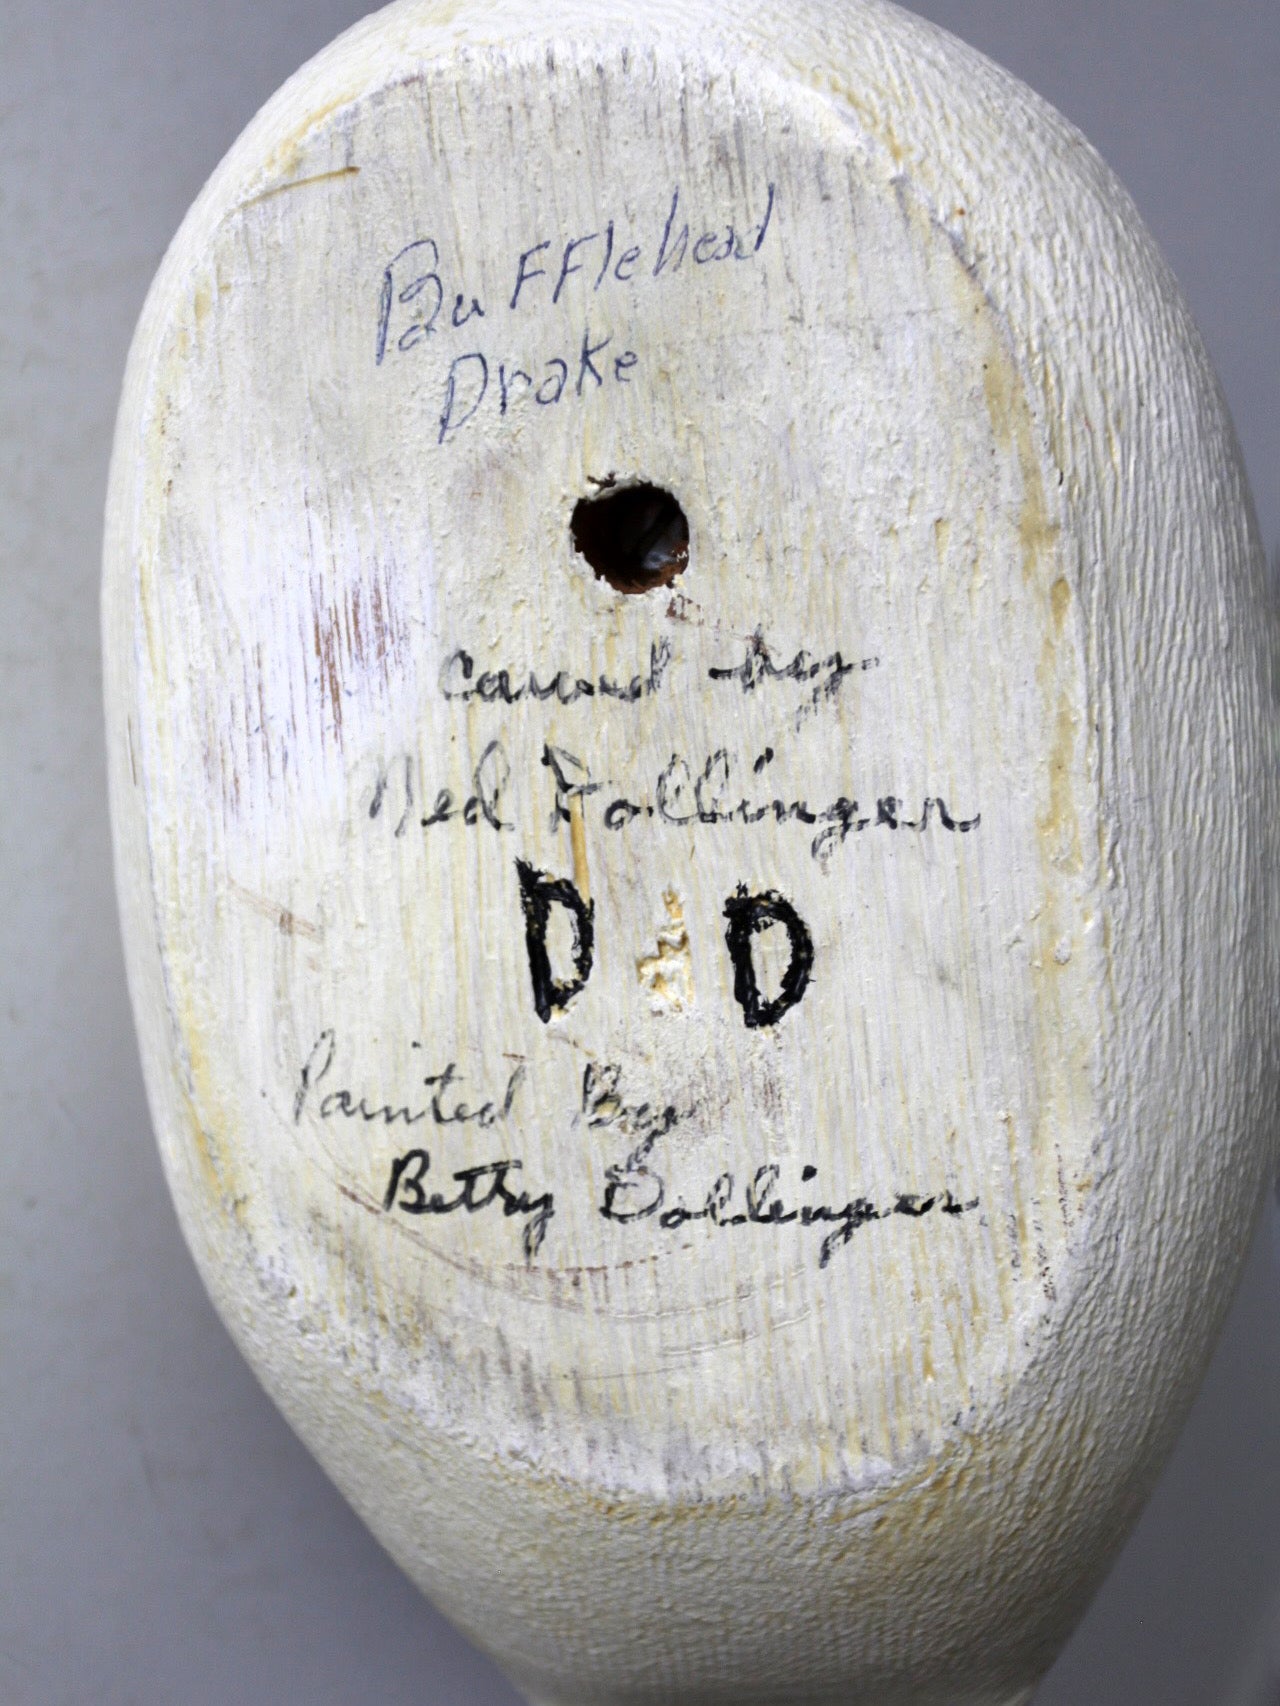 Bufflehead
Drake
carved by
Ned Dollinger
D D
Painted By
Betty Dollinger